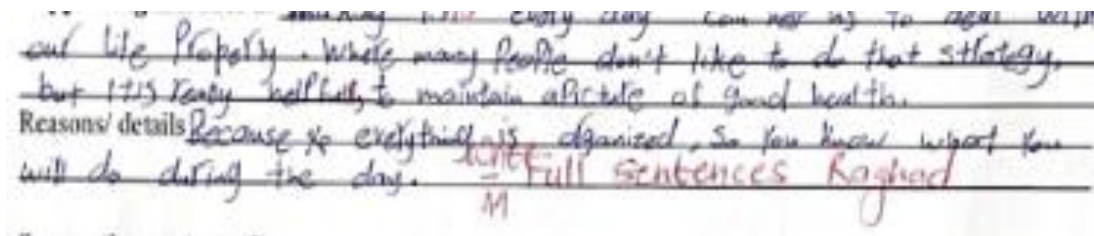 making list every day can help us to deal with
our life Property. Where many People don't like to do that strategy,
but it is really helpful, to maintain a Picture of good health.
Reasons/ details Because everything is organized, so You know what You
will do during the day. write Full Sentences Raghad
M